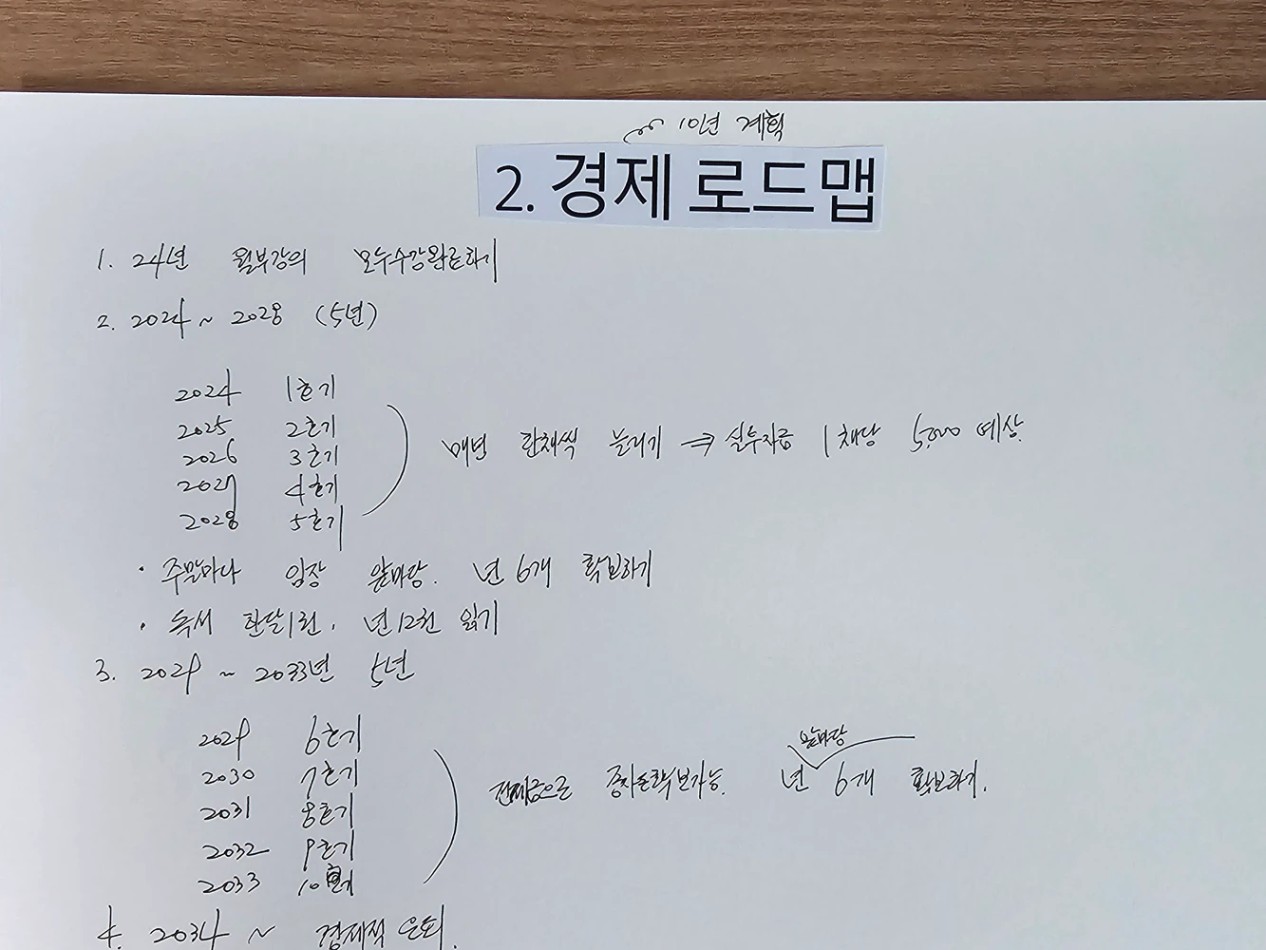 10년 계획
2. 경제 로드맵
1. 24년 월부강의 모두수강완료하기
2. 2024 ~ 2028 (5년)
2024 1호기
2025 2호기
2026 3호기
2027 4호기
2028 5호기
매년 한채씩 늘리기 ⇒ 실투자금 1채당 5,000 예상.
· 주말마다 임장 앞마당. 년 6개 확보하기
· 독서 한달1권, 년12권 읽기
3. 2029 ~ 2033년 5년
2029 6호기
2030 7호기
2031 8호기
2032 9호기
2033 10호기
앞마당
전세금으로 종자돈확보가능. 년 6개 확보하기.
4. 2034 ~ 경제적 은퇴.